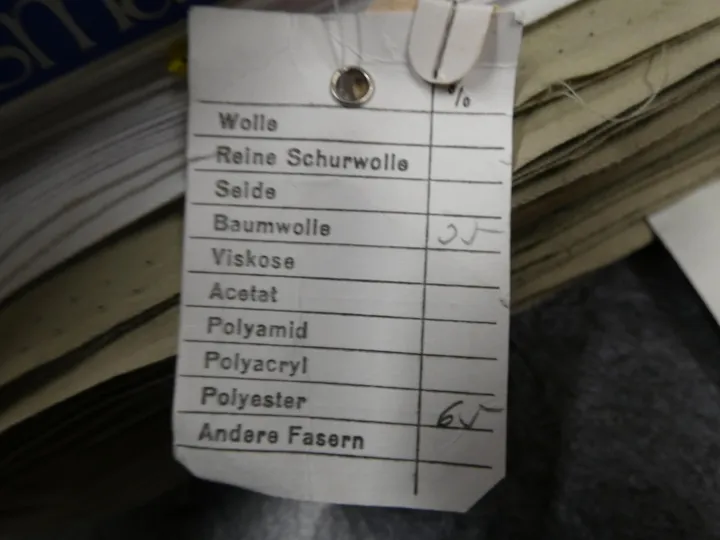 %
Wolle
Reine Schurwolle
Seide
Baumwolle 35
Viskose
Acetat
Polyamid
Polyacryl
Polyester 65
Andere Fasern